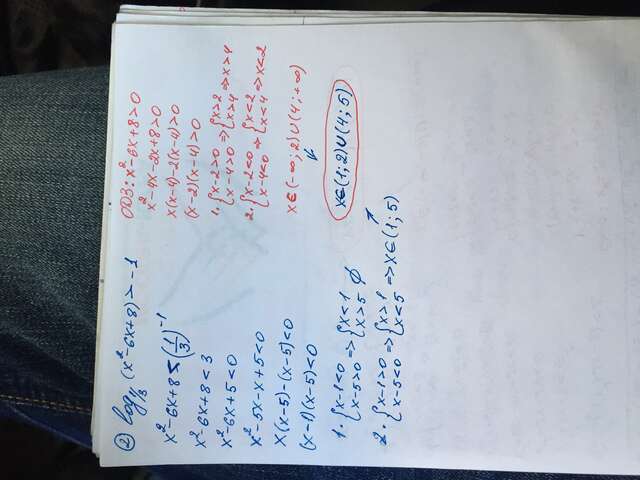 ② log₁/₃ (x²-6x+8) > -1
x²-6x+8 < (1/3)⁻¹
x²-6x+8 < 3
x²-6x+5 < 0
x²-5x-x+5<0
x(x-5)-(x-5)<0
(x-1)(x-5)<0
1. {x-1<0 x-5>0 => {x<1 x>5 ∅
2. {x-1>0 x-5<0 => {x>1 x<5 => x∈(1;5)
ОДЗ: x²-6x+8>0
x²-4x-2x+8>0
x(x-4)-2(x-4)>0
(x-2)(x-4)>0
1. {x-2>0 x-4>0 => {x>2 x>4 => x>4
2. {x-2<0 x-4<0 => {x<2 x<4 => x<2
x∈(-∞;2)∪(4;+∞)
x∈(1;2)∪(4;5)